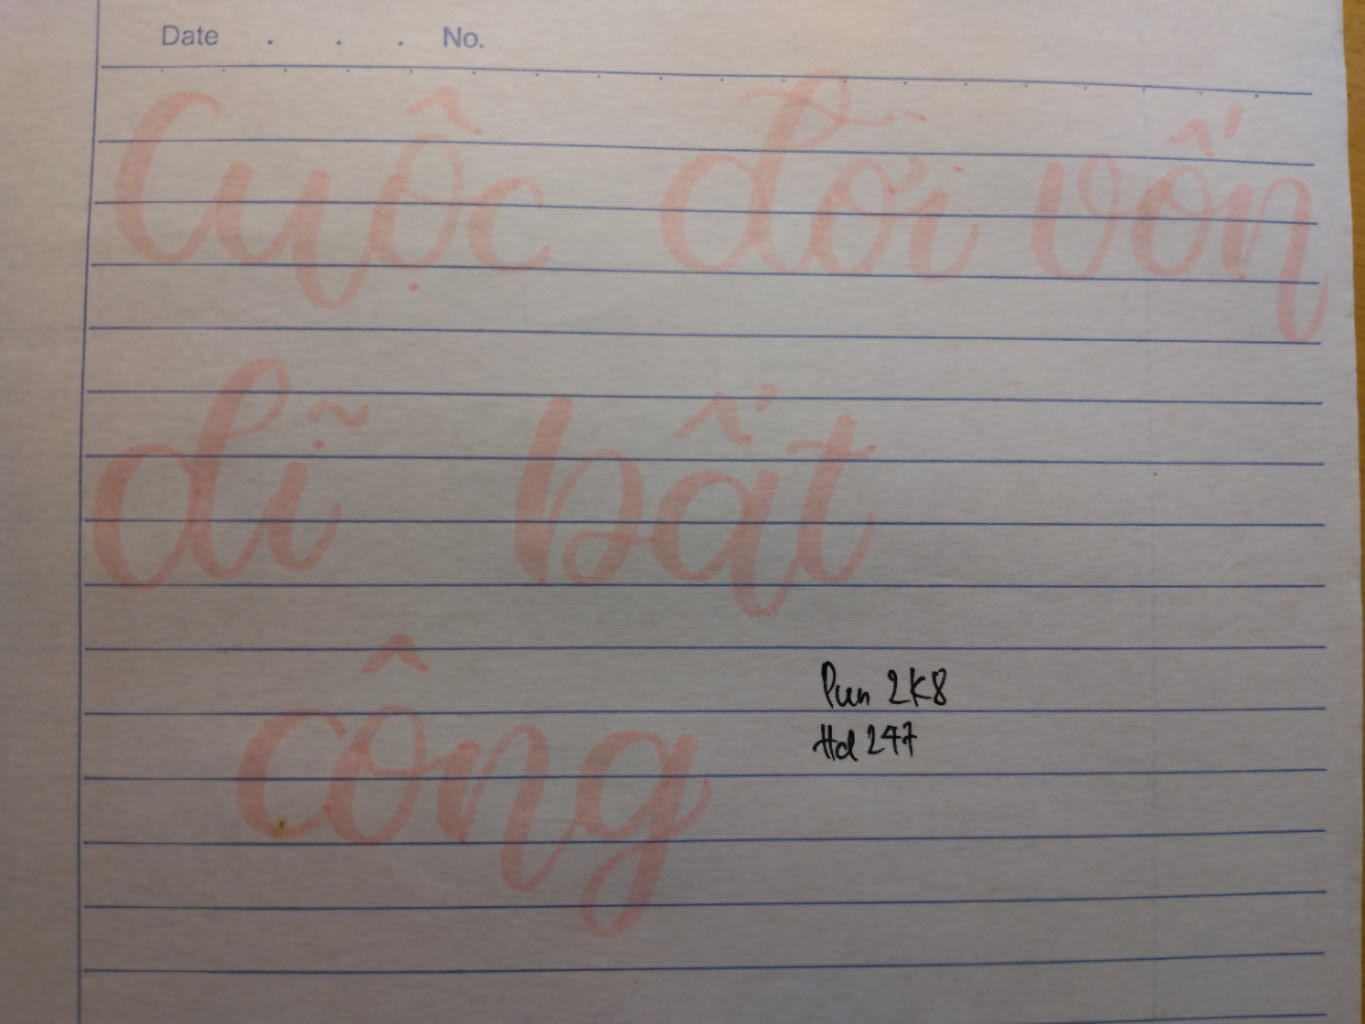 Date . . . No.
Cuộc đời vốn
dĩ bất
công
Pun 2K8
Hd 247